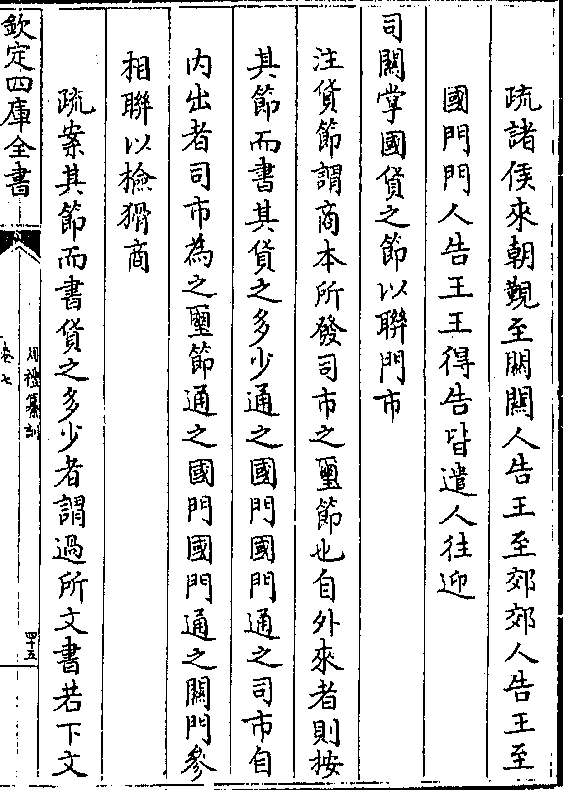 疏諸侯來朝覲至關關人告王至郊郊人告王至
國門門人告王王得告皆遣人往迎
司關掌國貨之節以聯門市
注貨節謂商本所發司市之璽節也自外來者則按
其節而書其貨之多少通之國門國門通之司市自
内出者司市為之璽節通之國門國門通之關門參
相聯以檢猾商
疏案其節而書貨之多少者謂過所文書若下文
欽定四庫全書
周禮纂訓
卷七
四十五